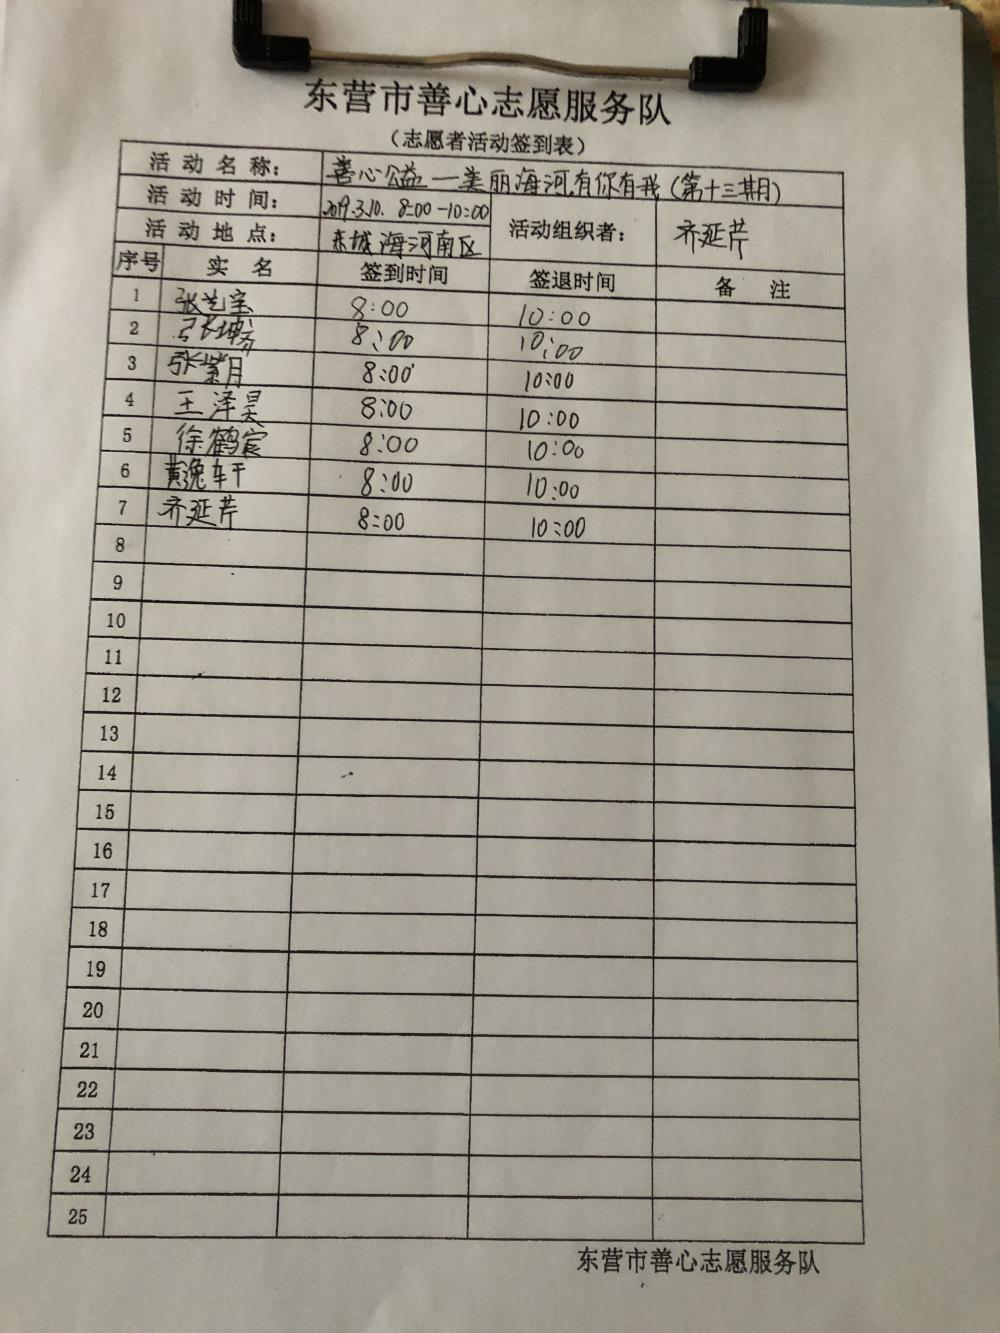 东营市善心志愿服务队
（志愿者活动签到表）
活动名称： 善心公益一美丽海河有你有我（第十三期）
活动时间： 2019.3.10. 8:00-10:00 活动组织者： 齐延芹
活动地点： 东城海河南区
序号 实名 签到时间 签退时间 备注
1 张艺宝 8:00 10:00
2 张坤芳 8:00 10:00
3 张紫月 8:00 10:00
4 王泽昊 8:00 10:00
5 徐鹤宸 8:00 10:00
6 黄逸 8:00 10:00
7 齐延芹 8:00 10:00
8
9
10
11
12
13
14
15
16
17
18
19
20
21
22
23
24
25
东营市善心志愿服务队